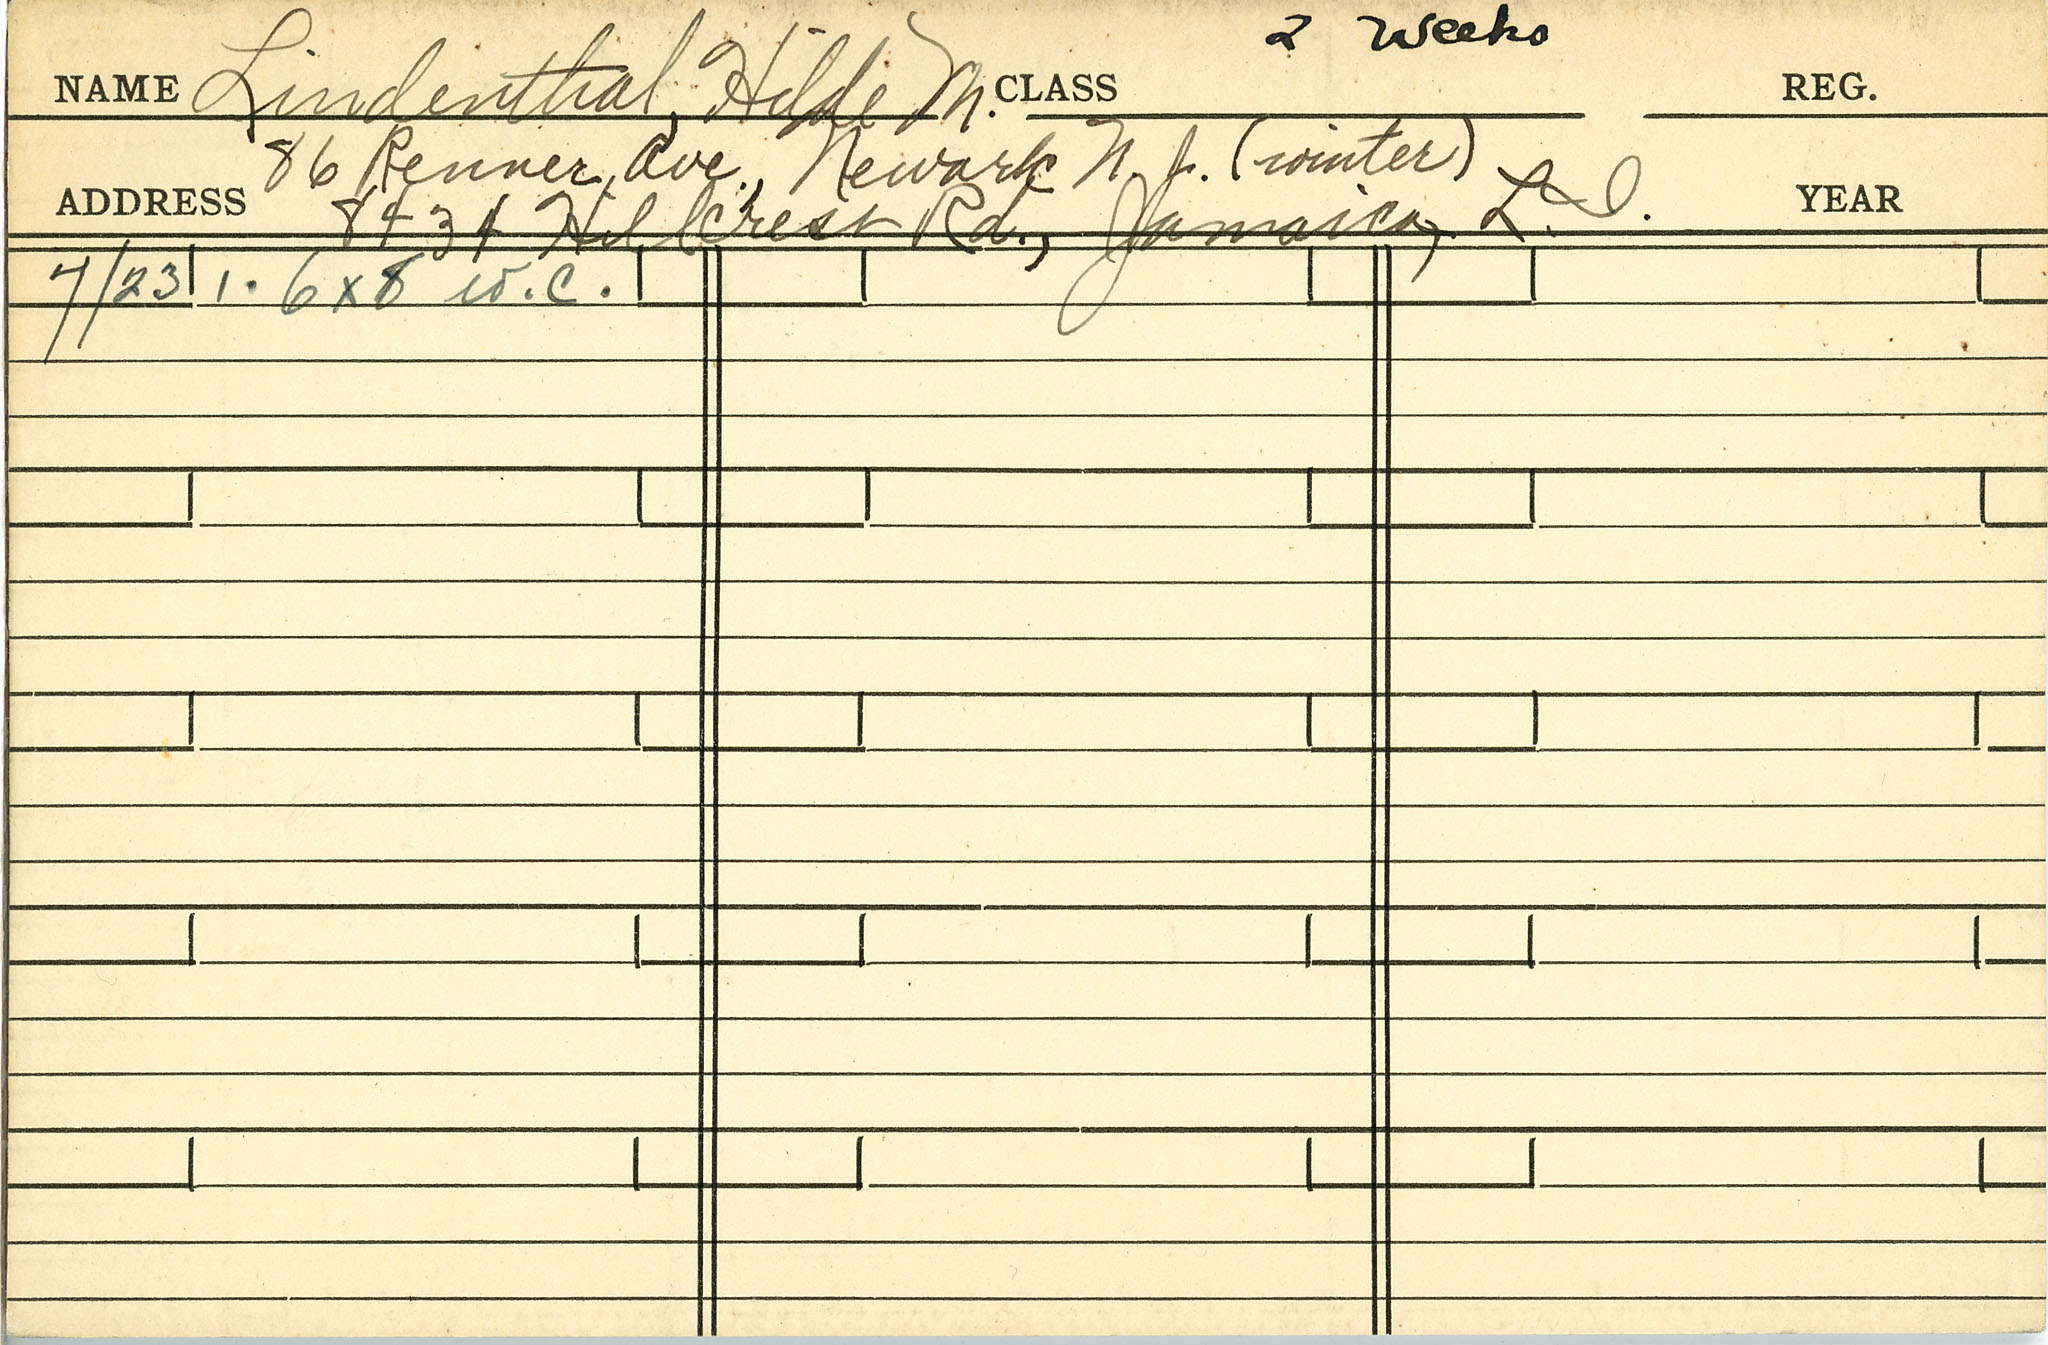 2 Weeks
NAME Lindenthal, Hilde M. CLASS REG.
86 Renner Ave., Newark N.J. (winter)
ADDRESS 8434 Hillcrest Rd., Jamaica, L.I. YEAR
7/23 1. 6x8 w.c.